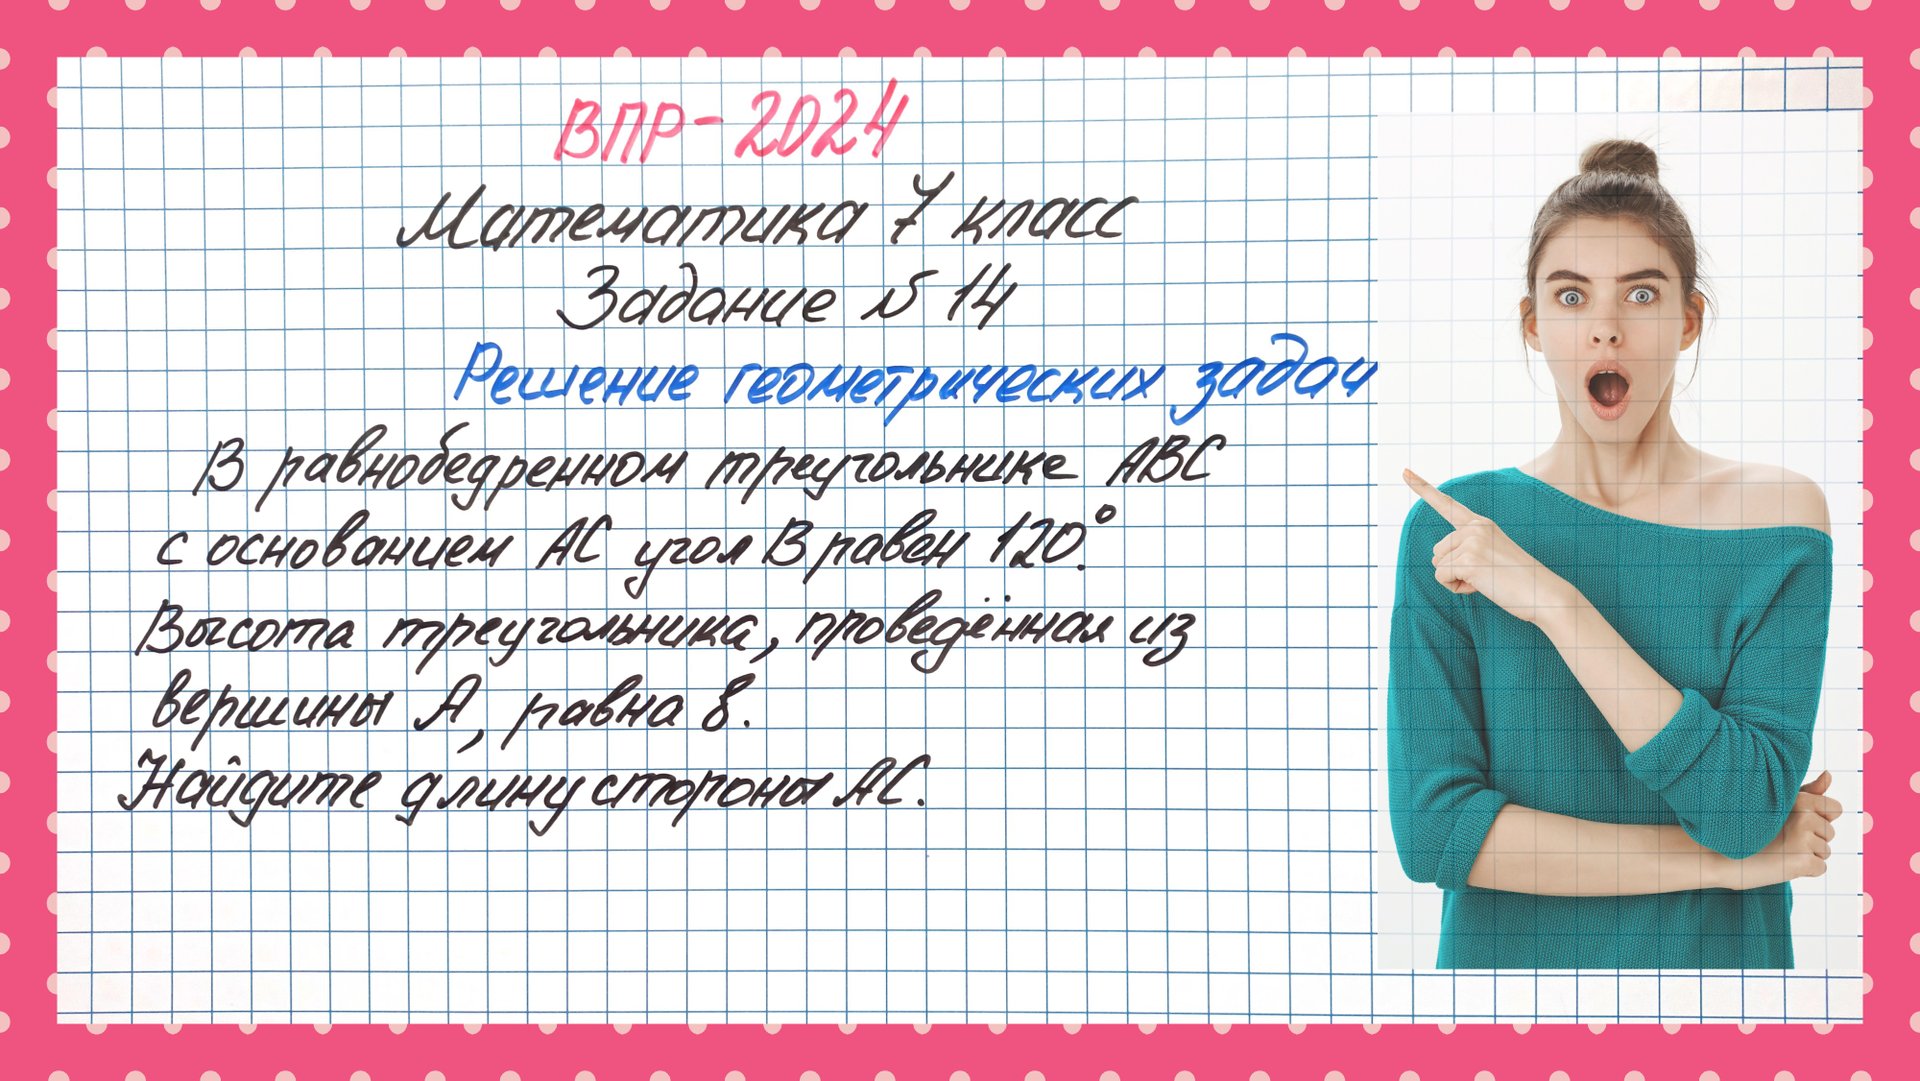 ВПР-2024
Математика 7 класс
Задание № 14
Решение геометрических задач
В равнобедренном треугольнике ABC
с основанием AC угол B равен 120°.
Высота треугольника, проведённая из
вершины A, равна 8.
Найдите длину стороны AC.